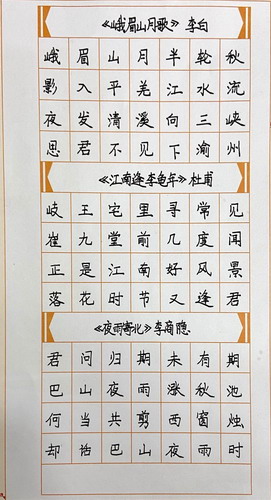 《峨眉山月歌》 李白
峨眉山月半轮秋
影入平羌江水流
夜发清溪向三峡
思君不见下渝州
《江南逢李龟年》 杜甫
岐王宅里寻常见
崔九堂前几度闻
正是江南好风景
落花时节又逢君
《夜雨寄北》 李商隐
君问归期未有期
巴山夜雨涨秋池
何当共剪西窗烛
却话巴山夜雨时